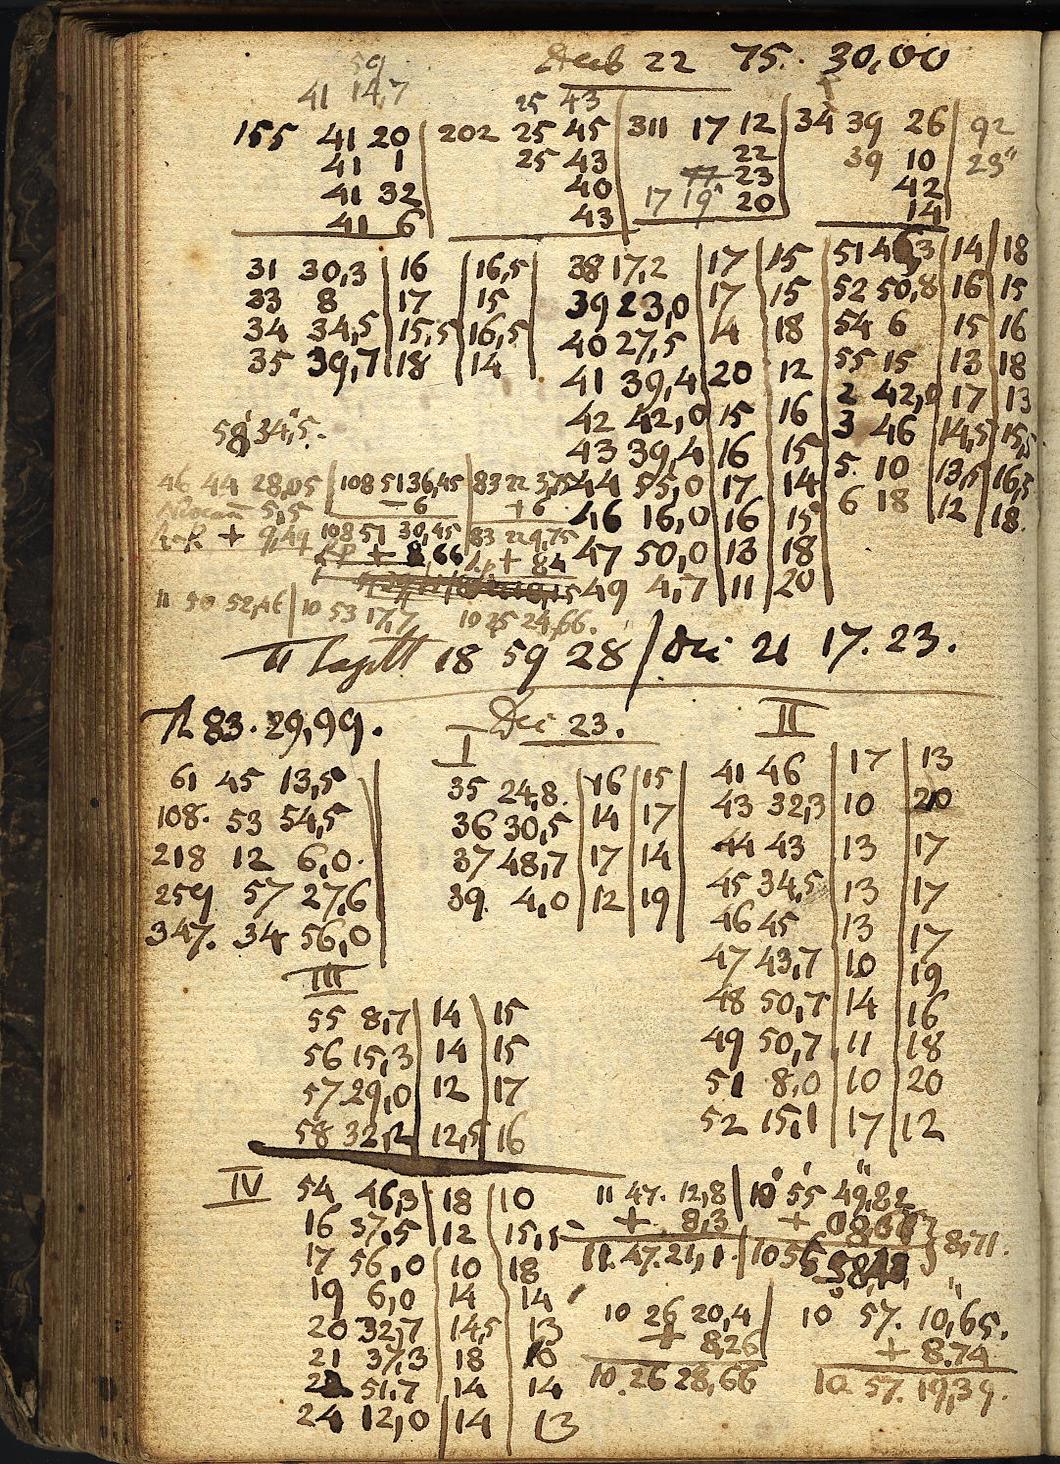 Decb 22 75. 30,00
59
41 14,7
25 43
155 41 20 202 25 45 311 17 12 34 39 26 92
41 1 25 43 22 39 10 23"
41 32 40 23 42
41 6 43 17 19 20 14
31 30,3 16 16,5
33 8 17 15
34 34,5 15,5 16,5
35 39,7 18 14
58 34,5.
38 17,2 17 15
39 23,0 17 15
40 27,5 14 18
41 39,4 20 12
42 42,0 15 16
43 39,4 16 15
44 55,0 17 14
46 16,0 16 15
47 50,0 13 18
49 4,7 11 20
51 46,3 14 18
52 50,8 16 15
54 6 15 16
55 15 13 18
2 42,0 17 13
3 46 14,5 15,5
5. 10 13,5 16,5
6 18 12 18.
46 44 28,05 108 51 36,45 83 22 3,75
5,5 – 6 + 6
+ 9,49 108 51 30,45 83 22 9,75
+ 8,66 + 84
11 50 52,46 10 53 17,7 10 25 24,66.
18 59 28 / Dec 21 17. 23.
83. 29,99. Dec 23.
61 45 13,5
108. 53 54,5
218 12 6,0.
259 57 27,6
347. 34 56,0
I
35 24,8. 16 15
36 30,5 14 17
37 48,7 17 14
39. 4,0 12 19
II
41 46 17 13
43 32,3 10 20
44 43 13 17
45 34,5 13 17
46 45 13 17
47 43,7 10 19
48 50,7 14 16
49 50,7 11 18
51 8,0 10 20
52 15,1 17 12
III
55 8,7 14 15
56 15,3 14 15
57 29,0 12 17
58 32,2 12,5 16
IV
54 46,3 18 10
16 37,5 12 15,5
17 56,0 10 18
19 6,0 14 14
20 32,7 14,5 13
21 37,3 18 10
51,7 14 14
24 12,0 14 13
11 47. 12,8 10 55 49,82
+ 8,3 +
11. 47. 21,1. 10 55 8,71.
10 26 20,4 10 57. 10,65.
+ 8,26 + 8.74
10. 26 28,66 10. 57. 19,39.